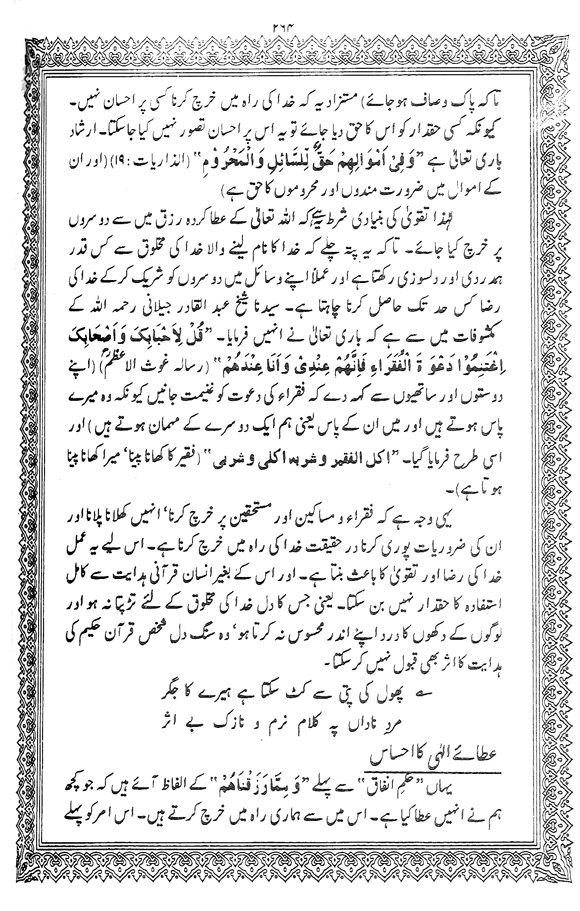 ۲۶۴
تاکہ پاک و صاف ہو جائے) مستزاد یہ کہ خدا کی راہ میں خرچ کرنا کسی پر احسان نہیں۔
کیونکہ کسی حقدار کو اس کا حق دیا جائے تو یہ اس پر احسان تصور نہیں کیا جا سکتا۔ ارشاد
باری تعالیٰ ہے "وَفِیْ اَمْوَالِهِمْ حَقٌّ لِّلسَّائِلِ وَالْمَحْرُوْمِ" (الذاریات : ۱۹) (اور ان
کے اموال میں ضرورت مندوں اور محروموں کا حق ہے)
لہٰذا تقویٰ کی بنیادی شرط یہ ہے کہ اللہ تعالیٰ کے عطا کردہ رزق میں سے دوسروں
پر خرچ کیا جائے۔ تاکہ یہ پتہ چلے کہ خدا کا نام لینے والا خدا کی مخلوق سے کس قدر
ہمدردی اور دلسوزی رکھتا ہے اور عملاً اپنے وسائل میں دوسروں کو شریک کر کے خدا کی
رضا کس حد تک حاصل کرنا چاہتا ہے۔ سیدنا شیخ عبد القادر جیلانی رحمہ اللہ کے
مکشوفات میں سے ہے کہ باری تعالیٰ نے انہیں فرمایا۔ "قُلْ لِاَحْبَابِکَ وَاَصْحَابِکَ
اِغْتَنِمُوْا دَعْوَةَ الْفُقَرَاءِ فَاِنَّهُمْ عِنْدِیْ وَاَنَا عِنْدَهُمْ" (رسالہ غوث الاعظمؓ) (اپنے
دوستوں اور ساتھیوں سے کہہ دے کہ فقراء کی دعوت کو غنیمت جانیں کیونکہ وہ میرے
پاس ہوتے ہیں اور میں ان کے پاس یعنی ہم ایک دوسرے کے مہمان ہوتے ہیں) اور
اسی طرح فرمایا گیا۔ "اکل الفقیر و شربہ اکلی و شربی" (فقیر کا کھانا پینا' میرا کھانا پینا
ہوتا ہے)۔
یہی وجہ ہے کہ فقراء و مساکین اور مستحقین پر خرچ کرنا' انہیں کھلانا پلانا اور
ان کی ضروریات پوری کرنا در حقیقت خدا کی راہ میں خرچ کرنا ہے۔ اس لیے یہ عمل
خدا کی رضا اور تقویٰ کا باعث بنتا ہے۔ اور اس کے بغیر انسان قرآنی ہدایت سے کامل
استفادہ کا حقدار نہیں بن سکتا۔ یعنی جس کا دل خدا کی مخلوق کے لئے تڑپتا نہ ہو اور
لوگوں کے دکھوں کا درد اپنے اندر محسوس نہ کرتا ہو' وہ سنگ دل شخص قرآن حکیم کی
ہدایت کا اثر بھی قبول نہیں کر سکتا۔
؎ پھول کی پتی سے کٹ سکتا ہے ہیرے کا جگر
مردِ ناداں پہ کلام نرم و نازک بے اثر
عطائے الٰہی کا احساس
یہاں "حکمِ انفاق" سے پہلے "وَمِمَّا رَزَقْنَاهُمْ" کے الفاظ آئے ہیں کہ جو کچھ
ہم نے انہیں عطا کیا ہے۔ اس میں سے ہماری راہ میں خرچ کرتے ہیں۔ اس امر کو پہلے